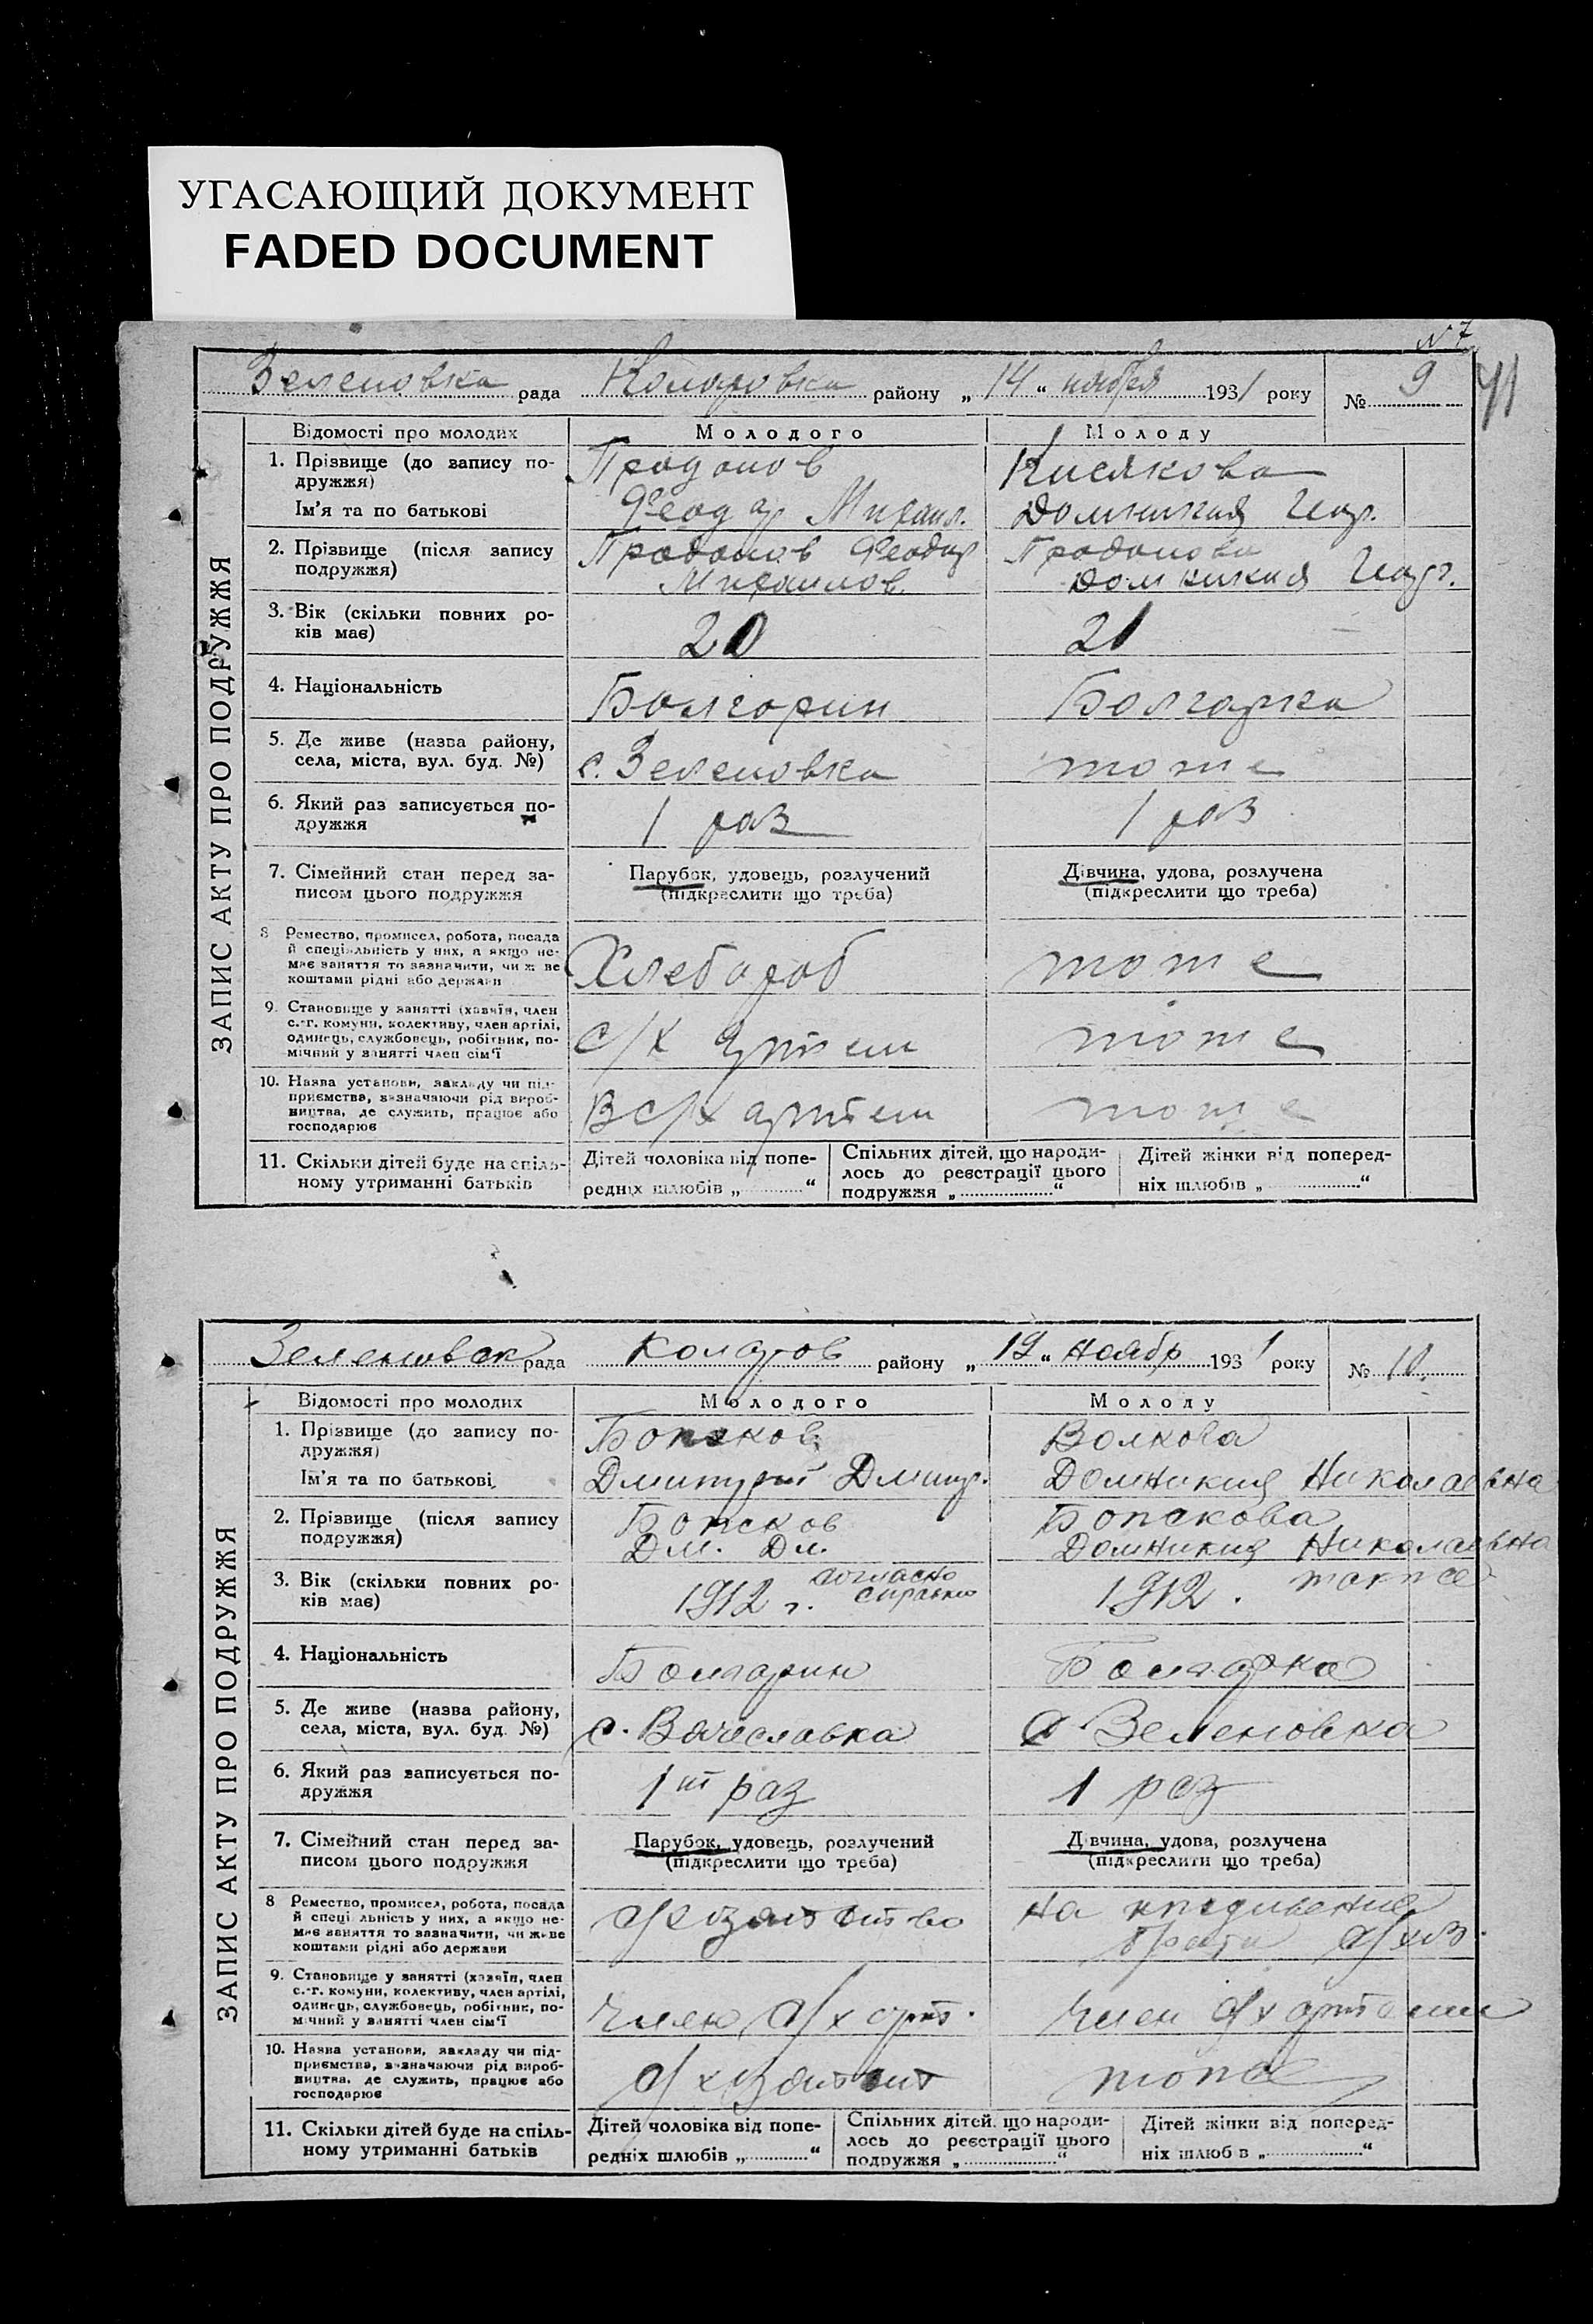 УГАСАЮЩИЙ ДОКУМЕНТ
FADED DOCUMENT
N 7
Зеленовка рада Коларовка району „ 14 “ ноября 1931 року № 9
ЗАПИС АКТУ ПРО ПОДРУЖЖЯ
Відомості про молодих Молодого Молоду
1. Прізвище (до запису по-
дружжя)
Продонов Кисякова
Ім'я та по батькові
Феодор Михаил. Домникия
2. Прізвище (після запису
подружжя)
Продонов Феодор
Михаилов.
Продонова
Домникия
3. Вік (скільки повних ро-
ків має)
20 21
4. Національність
Болгорин Болгарка
5. Де живе (назва району,
села, міста, вул. буд. №)
с. Зеленовка тоже
6. Який раз записується по-
дружжя
1 раз 1 раз
7. Сімейний стан перед за-
писом цього подружжя
Парубок, удовець, розлучений
(підкреслити що треба)
Дівчина, удова, розлучена
(підкреслити що треба)
8 Ремество, промисел, робота, посада
й спеціяльність у них, а якщо не-
має заняття то зазначити, чи живе
коштами рідні або держави
Хлебороб тоже
9. Становище у занятті (хазяїн, член
с.-г. комуни, колективу, член артілі,
одинець, службовець, робітник, по-
мічний у занятті член сім'ї
с/х артели тоже
10. Назва установи, закладу чи під-
приємства, зазначаючи рід вироб-
ництва, де служить, працює або
господарює
В с/х артели тоже
11. Скільки дітей буде на спіль-
ному утриманні батьків
Дітей чоловіка від попе-
редніх шлюбів „ “
Спільних дітей, що народи-
лось до реєстрації цього
подружжя „ “
Дітей жінки від поперед-
ніх шлюбів „ “
Зеленовск рада Коларов району „ 19 “ Ноябр 1931 року № 10.
ЗАПИС АКТУ ПРО ПОДРУЖЖЯ
Відомості про молодих Молодого Молоду
1. Прізвище (до запису по-
дружжя)
Волкова
Ім'я та по батькові
Дмитрий Дмитр. Домникия Николаевна
2. Прізвище (після запису
подружжя)
Бопсков
Дм. Дм.
Бопскова
Домникия Николаевна
3. Вік (скільки повних ро-
ків має)
1912 г. согласно
справки
1912. также
4. Національність
Болгарин Болгарка
5. Де живе (назва району,
села, міста, вул. буд. №)
с. Вячеславка с Зеленовка
6. Який раз записується по-
дружжя
1й раз 1 раз
7. Сімейний стан перед за-
писом цього подружжя
Парубок, удовець, розлучений
(підкреслити що треба)
Дівчина, удова, розлучена
(підкреслити що треба)
8 Ремество, промисел, робота, посада
й спеціяльність у них, а якщо не-
має заняття то зазначити, чи живе
коштами рідні або держави
на иждивение
брата
9. Становище у занятті (хазяїн, член
с.-г. комуни, колективу, член артілі,
одинець, службовець, робітник, по-
мічний у занятті член сім'ї
Член с/х арт. Член с/х артели
10. Назва установи, закладу чи під-
приємства, зазначаючи рід вироб-
ництва, де служить, працює або
господарює
тоже
11. Скільки дітей буде на спіль-
ному утриманні батьків
Дітей чоловіка від попе-
редніх шлюбів „ “
Спільних дітей, що народи-
лось до реєстрації цього
подружжя „ “
Дітей жінки від поперед-
ніх шлюбів „ “